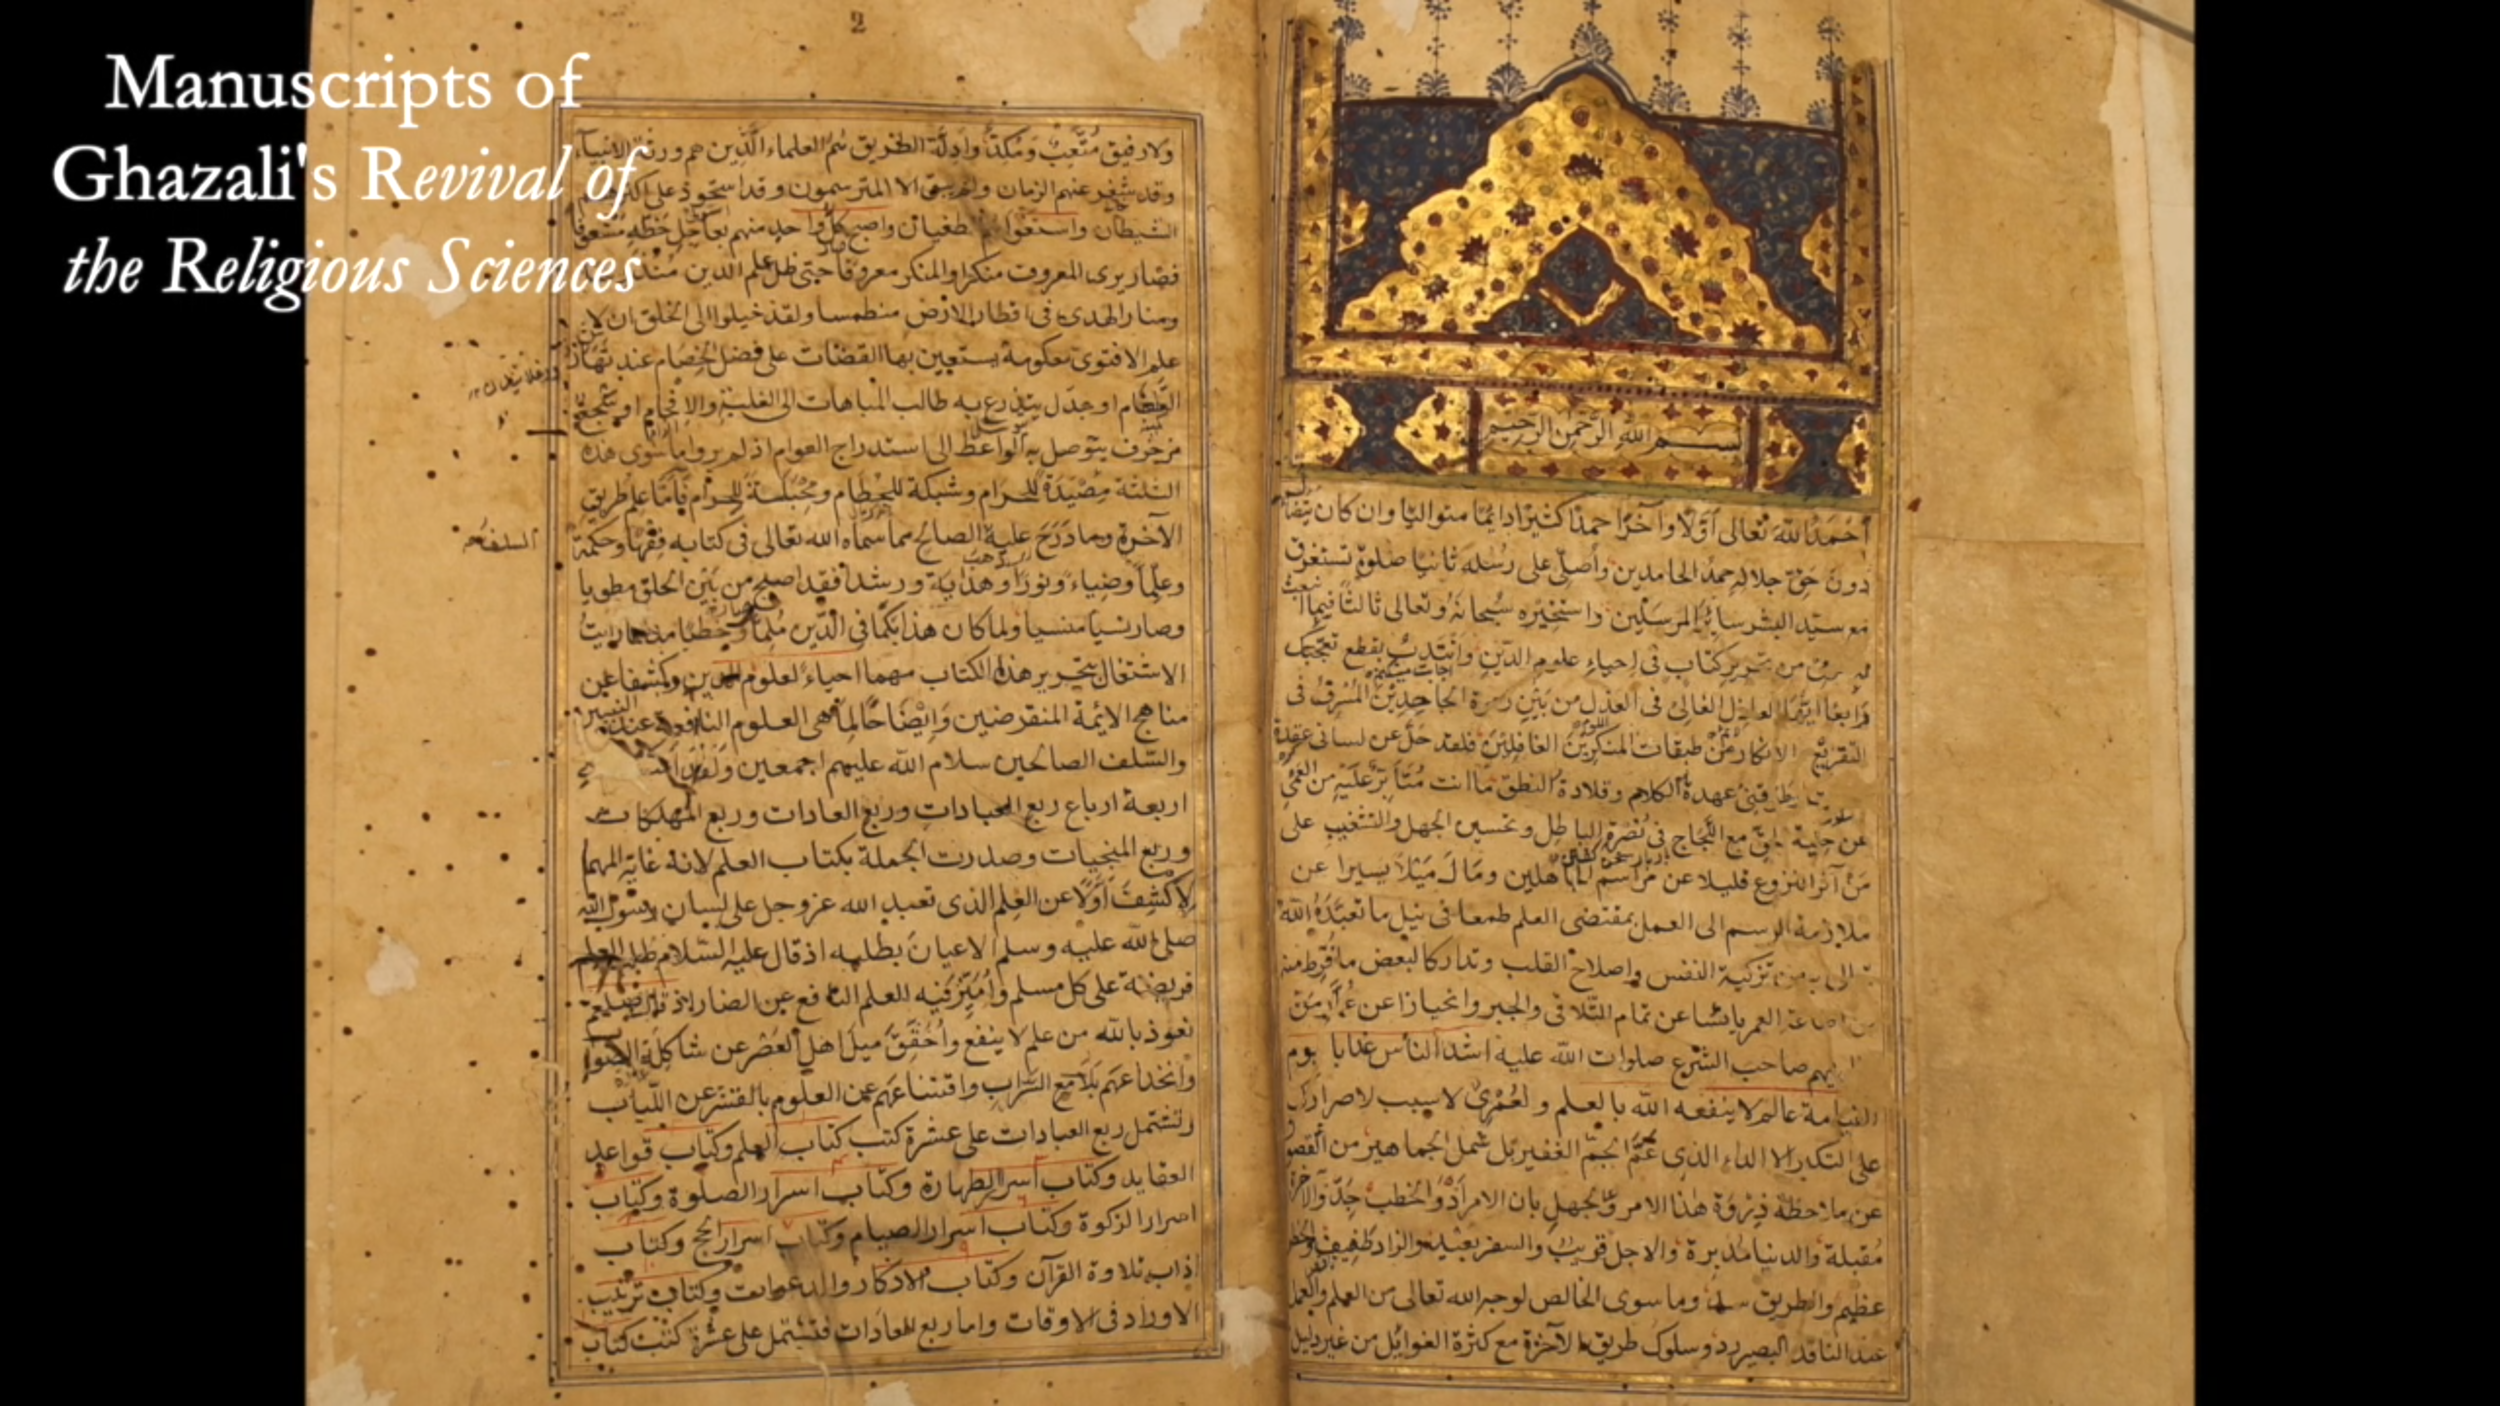 Manuscripts of
Ghazali's Revival of
the Religious Sciences
2
بسم الله الرحمن الرحيم
أحمد الله تعالى أوّلا وآخرا حمدا كثيرا دايما متواليا وان كان يتضاءل
دون حق جلاله حمد الحامدين وأصلى على رسله ثانيا صلوة تستغرق
مع سيد البشر ساير المرسلين واستخيره سبحانه وتعالى ثالثا فيما انبعث
من تحرير كتاب فى احياء علوم الدين وانتدب بقطع تعجبك
رابعا ايها العاذل الغالى فى العذل من بين زمرة الجاحدين المسرف فى
التقريع الانكار من طبقات المنكرين الغافلين فلقد حل عن لسانى عقدة
عهدة الكلام وقلادة النطق ما انت مثابر عليه من العمى
عن جلية مع اللجاج فى نصرة الباطل وتحسين الجهل والتشغيب على
من آثر النزوع قليلا عن مراسم ومال ميلا يسيرا عن
ملازمة الرسم الى العمل بمقتضى العلم طمعا فى نيل ما تعبده الله
به من تزكية النفس واصلاح القلب وتداركا لبعض ما فرط منه
من اضاعة العمر يائسا عن تمام التلافى والجبر وانحيازا عن غمار من
صاحب الشرع صلوات الله عليه اشد الناس عذابا يوم
القيامة عالم لا ينفعه الله بالعلم ولعمرى لا سبب لاصرارك
على التكبر الا الداء الذى عم الجم الغفير بل شمل الجماهير من القصور
عن ملاحظة ذروة هذا الامر والجهل بان الامر اد والخطب جد والآخرة
مقبلة والدنيا مدبرة والاجل قريب والسفر بعيد والزاد طفيف والخطر
عظيم والطريق سد وما سوى الخالص لوجه الله تعالى من العلم والعمل
عند الناقد البصير رد وسلوك طريق الآخرة مع كثرة الغوائل من غير دليل
ولا رفيق متعب ومكد وادلة الطريق هم العلماء الذين هم ورثة الانبياء
وقد شغر عنهم الزمان ولم يبق الا المترسمون وقد استحوذ على اكثرهم
الشيطان واستغواهم الطغيان واصبح كل واحد منهم بعاجل حظه مشعوفا
فصار يرى المعروف منكرا والمنكر معروفا حتى ظل علم الدين
ومنار الهدى فى اقطار الارض منطمسا ولقد خيلوا الى الخلق ان لا
علم الا فتوى حكومة يستعين بها القضات على فصل الخصام عند تهاوش
الطغام او جدل يتذرع به طالب المباهات الى الغلبة والافحام او سجع
مزخرف يتوصل به الواعظ الى استدراج العوام اذ لم يروا ما سوى هذه
الثلثة مصيدة للحرام وشبكة للحطام فاما علم طريق
الآخرة وما درج عليه الصالح مما سماه الله تعالى فى كتابه فقها وحكمة
وعلما وضياء ونورا وهداية ورشدا فقد اصبح من بين الخلق مطويا
وصار نسيا منسيا ولما كان هذا ثلما فى الدين ملما وخطبا مدلهما رايت
الاشتغال بتحرير هذا الكتاب مهما احياء لعلوم الدين وكشفا عن
مناهج الايمة المنقرضين وايضاحا لما هى العلوم النافعة عند النبيين
والسلف الصالحين سلام الله عليهم اجمعين
اربعة ارباع ربع العبادات وربع العادات وربع المهلكات
وربع المنجيات وصدرت الجملة بكتاب العلم لانه غاية المهم
لاكشف أوّلا عن العلم الذى تعبد الله عز وجل على لسان رسول الله
صلى الله عليه وسلم الاعيان بطلبه اذ قال عليه السلام طلب العلم
فريضة على كل مسلم واميز فيه العلم النافع عن الضار اذ قال صلعم
نعوذ بالله من علم لا ينفع واحقق ميل اهل العصر عن شاكلة الصواب
وانخداعهم بلامع السراب واقتناعهم عن العلوم بالقشر عن اللباب
وتشتمل ربع العبادات على عشرة كتب كتاب العلم وكتاب قواعد
العقايد وكتاب اسرار الطهارة وكتاب اسرار الصلوة وكتاب
اسرار الزكوة وكتاب اسرار الصيام وكتاب اسرار الحج وكتاب
اداب تلاوة القرآن وكتاب الاذكار والدعوات وكتاب ترتيب
الاوراد فى الاوقات واما ربع العادات فتشتمل على عشرة كتب كتاب